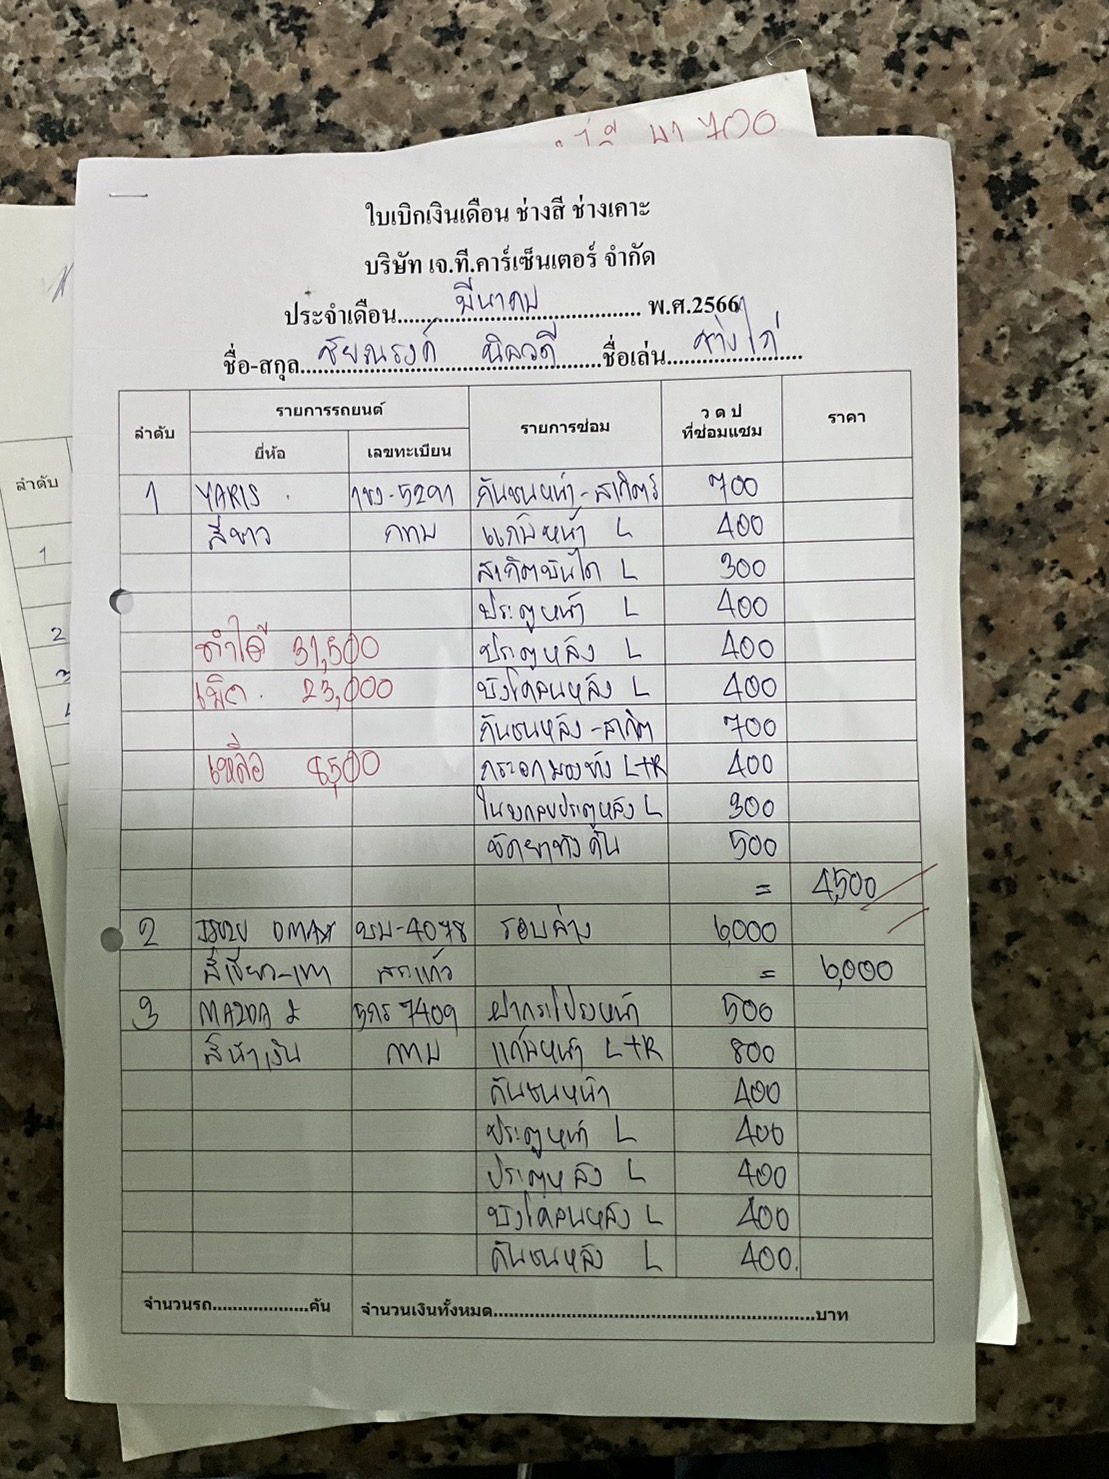 มา 700
ใบเบิกเงินเดือน ช่างสี ช่างเคาะ
บริษัท เจ.ที.คาร์เซ็นเตอร์ จำกัด
ประจำเดือน มีนาคม พ.ศ.2566
ชื่อ-สกุล ชัยณรงค์ นิลวดี ชื่อเล่น ช่างไก่
ลำดับ รายการรถยนต์ รายการซ่อม ว ด ป ที่ซ่อมแซม ราคา
ยี่ห้อ เลขทะเบียน
1 YARIS 1ขง-5291 กันชนหน้า-สเกิตร์ 700
สีขาว กทม แก้มหน้า L 400
สเกิตบันได L 300
ประตูหน้า L 400
ทำได้ 31,500 ประตูหลัง L 400
เบิก 23,000 บังโคลนหลัง L 400
กันชนหลัง-สเกิต 700
เหลือ 8,500 กระจกมองข้าง L+R 400
ในขอบประตูหลัง L 300
ขัดยาทั้งคัน 500
= 4,500
2 ISUZU DMAX บม-4078 รอบล่าง 6,000
สีเขียว-เทา สระแก้ว = 6,000
3 MAZDA 2 5กร 7409 ฝากระโปรงหน้า 500
สีน้ำเงิน กทม แก้มหน้า L+R 800
กันชนหน้า 400
ประตูหน้า L 400
ประตูหลัง L 400
บังโคลนหลัง L 400
กันชนหลัง L 400.
จำนวนรถ....................คัน จำนวนเงินทั้งหมด..................................................................บาท
ลำดับ
1
2
3